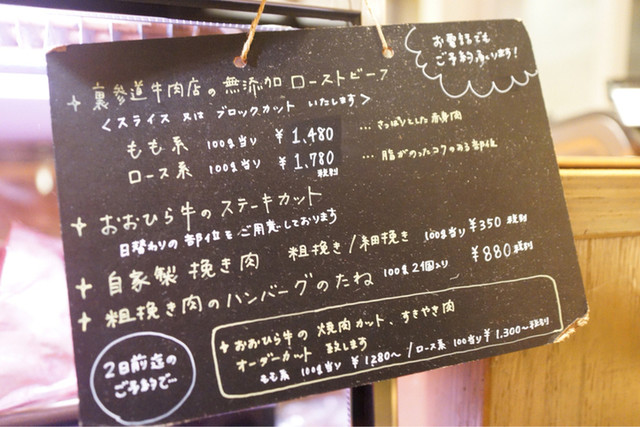 お電話でも
ご予約承ります!
+ 裏参道牛肉店の無添加ローストビーフ
<スライス 又は ブロックカット いたします>
もも系 100g当り ¥1,480 … さっぱりとした赤身肉
ロース系 100g当り ¥1,780 税別 … 脂がのったコクのある部位
+ おおひら牛のステーキカット
日替わりの部位をご用意しております
+ 自家製挽き肉 粗挽き/細挽き 100g当り ¥350 税別
+ 粗挽き肉のハンバーグのたね 100g2個入り ¥880 税別
2日前迄の
ご予約で…
+ おおひら牛の焼肉カット、すきやき肉
オーダーカット 致します
もも系 100g当り ¥1280〜 / ロース系 100g当り ¥1,300〜 税別